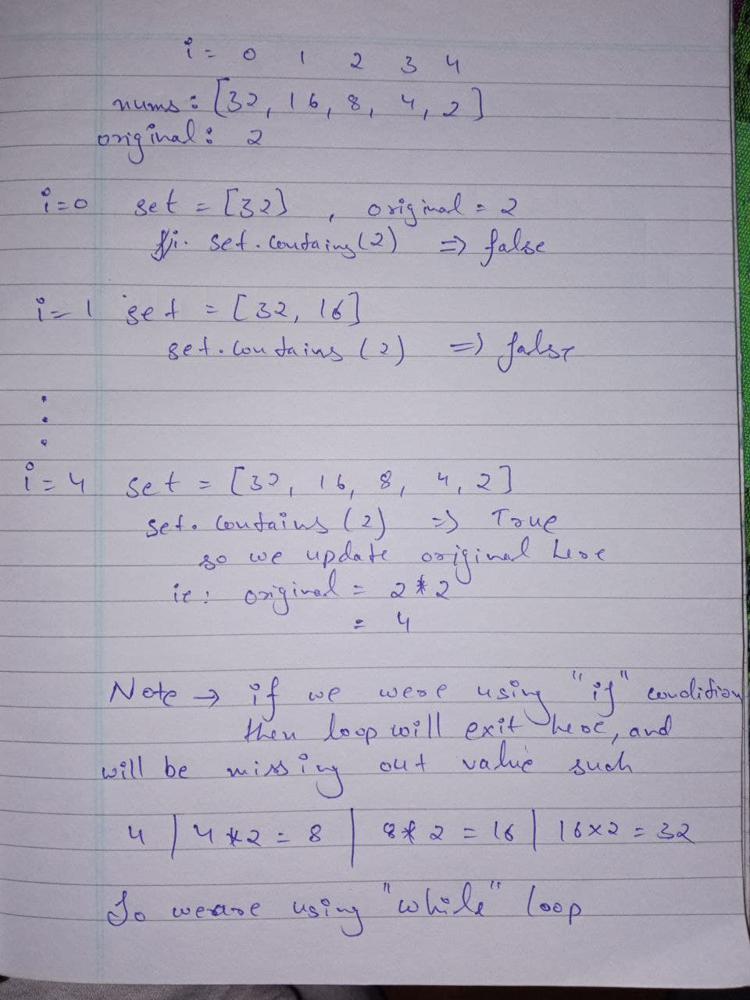 i = 0 1 2 3 4
nums : [32, 16, 8, 4, 2]
original : 2
i=0 set = [32] , original = 2
set.contains(2) => false
i=1 set = [32, 16]
set.contains (2) => false
i=4 set = [32, 16, 8, 4, 2]
set.contains (2) => True
so we update original here
ie: original = 2*2
= 4
Note → if we were using "if" condition
then loop will exit here, and
will be missing out value such
4 | 4*2 = 8 | 8*2 = 16 | 16×2 = 32
So we are using "while" loop